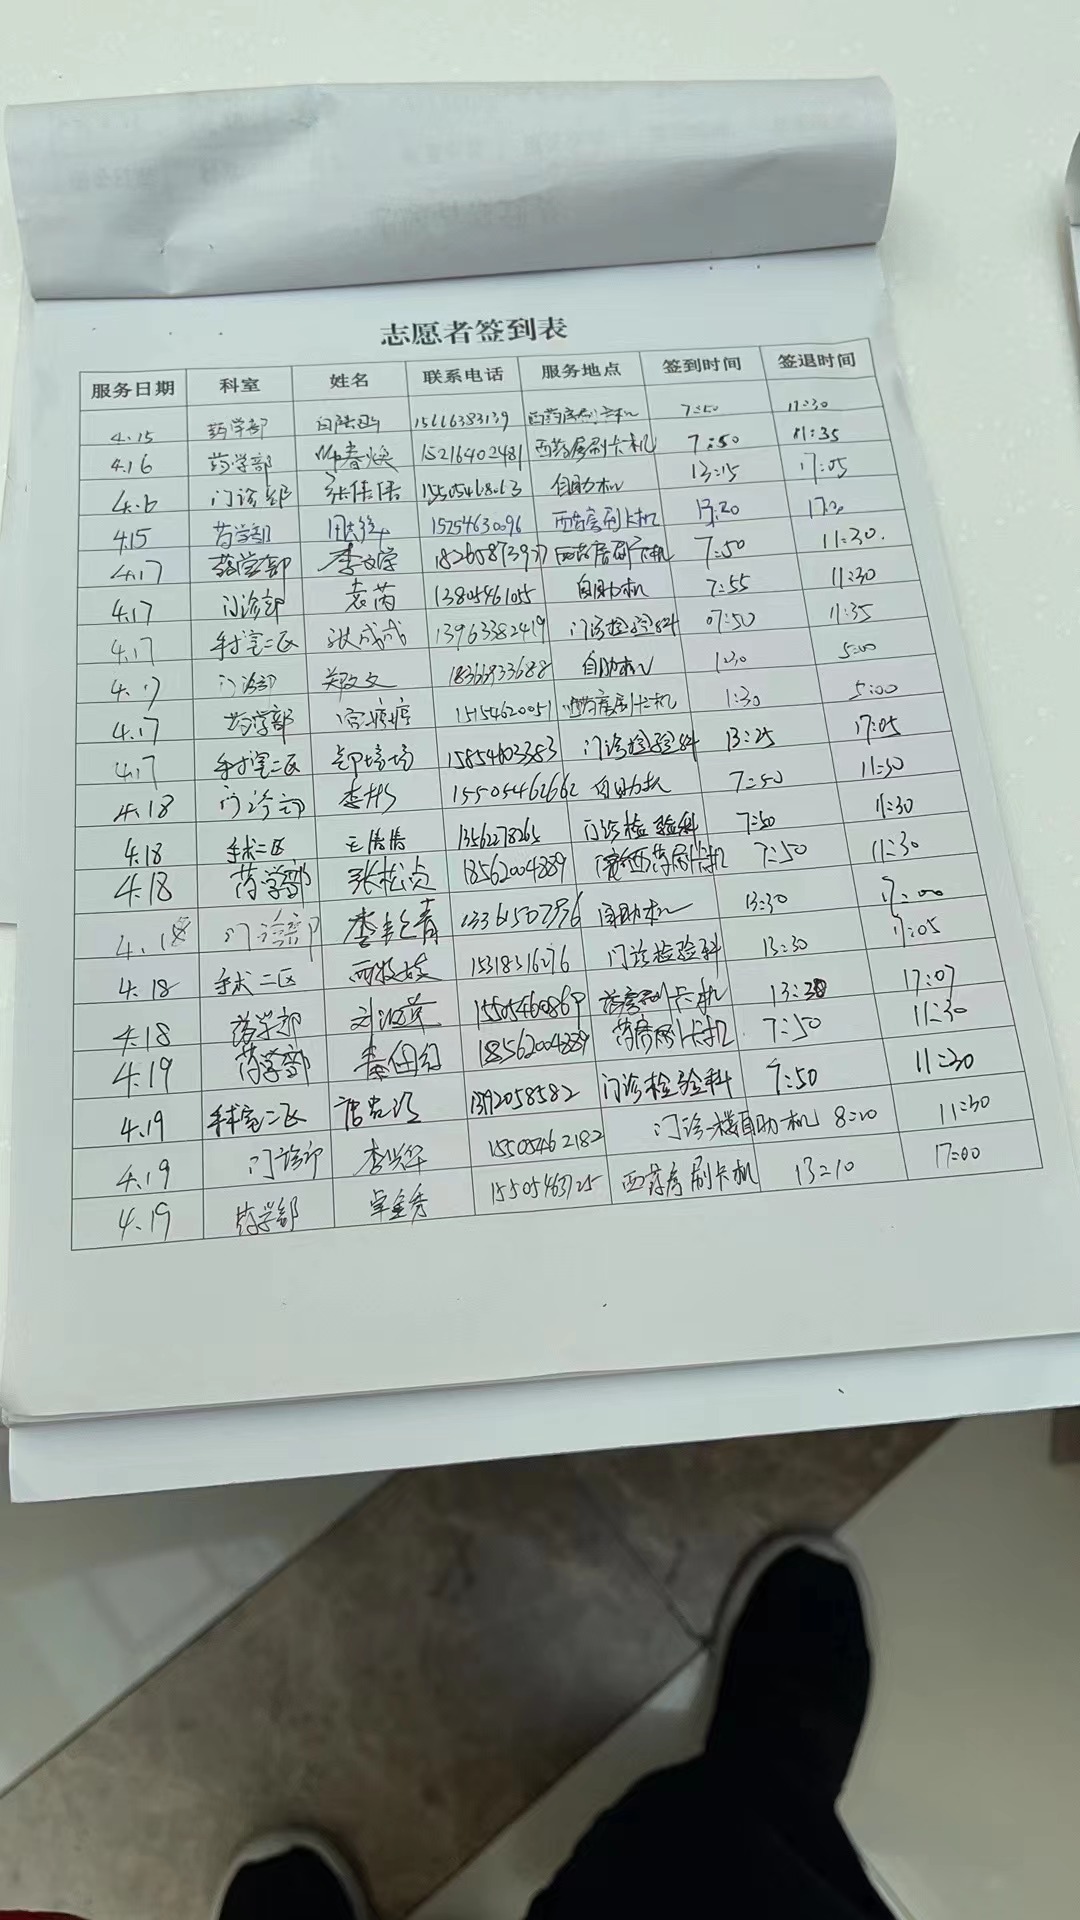 志愿者签到表
服务日期 科室 姓名 联系电话 服务地点 签到时间 签退时间
4.15 药学部 15666383139 西药房刷卡机 7:50 11:30
4.16 药学部 春焕 15216402481 西药房刷卡机 7:50 11:35
门诊部 张倩倩 自助机 13:15 17:05
4.15 药学部 15254630096 西药房刷卡机 13:20
4.17 药学部 李文学 西药房刷卡机 7:50 11:30.
4.17 门诊部 袁芮 13805461055 自助机 7:55 11:30
4.17 手术室二区 张成成 13963382419 门诊检验科 07:50 11:35
4.17 门诊部 郑文文 18366933688 自助机 5:00
4.17 药学部 15154620051 西药房刷卡机 1:30 5:00
4.17 手术室二区 培培 15854603383 门诊检验科 13:25 17:05
4.18 门诊部 15505462662 自助机 7:50 11:30
4.18 手术二区 王倩倩 13562278265 门诊检验科 7:50 11:30
4.18 药学部 张松贞 18562004889 西药房刷卡机 7:50 11:30
4.18 门诊部 李青 自助机 13:30 17:00
4.18 手术二区 15318316276 门诊检验科 13:30 17:05
4.18 药学部 刘 15505460869 药房刷卡机 13:30 17:07
4.19 药学部 18562004889 药房刷卡机 7:50 11:30
4.19 手术室二区 门诊检验科 7:50 11:30
4.19 门诊部 李 15505462182 门诊一楼自助机 8:00 11:30
4.19 药学部 15505463725 西药房刷卡机 13:10 17:00